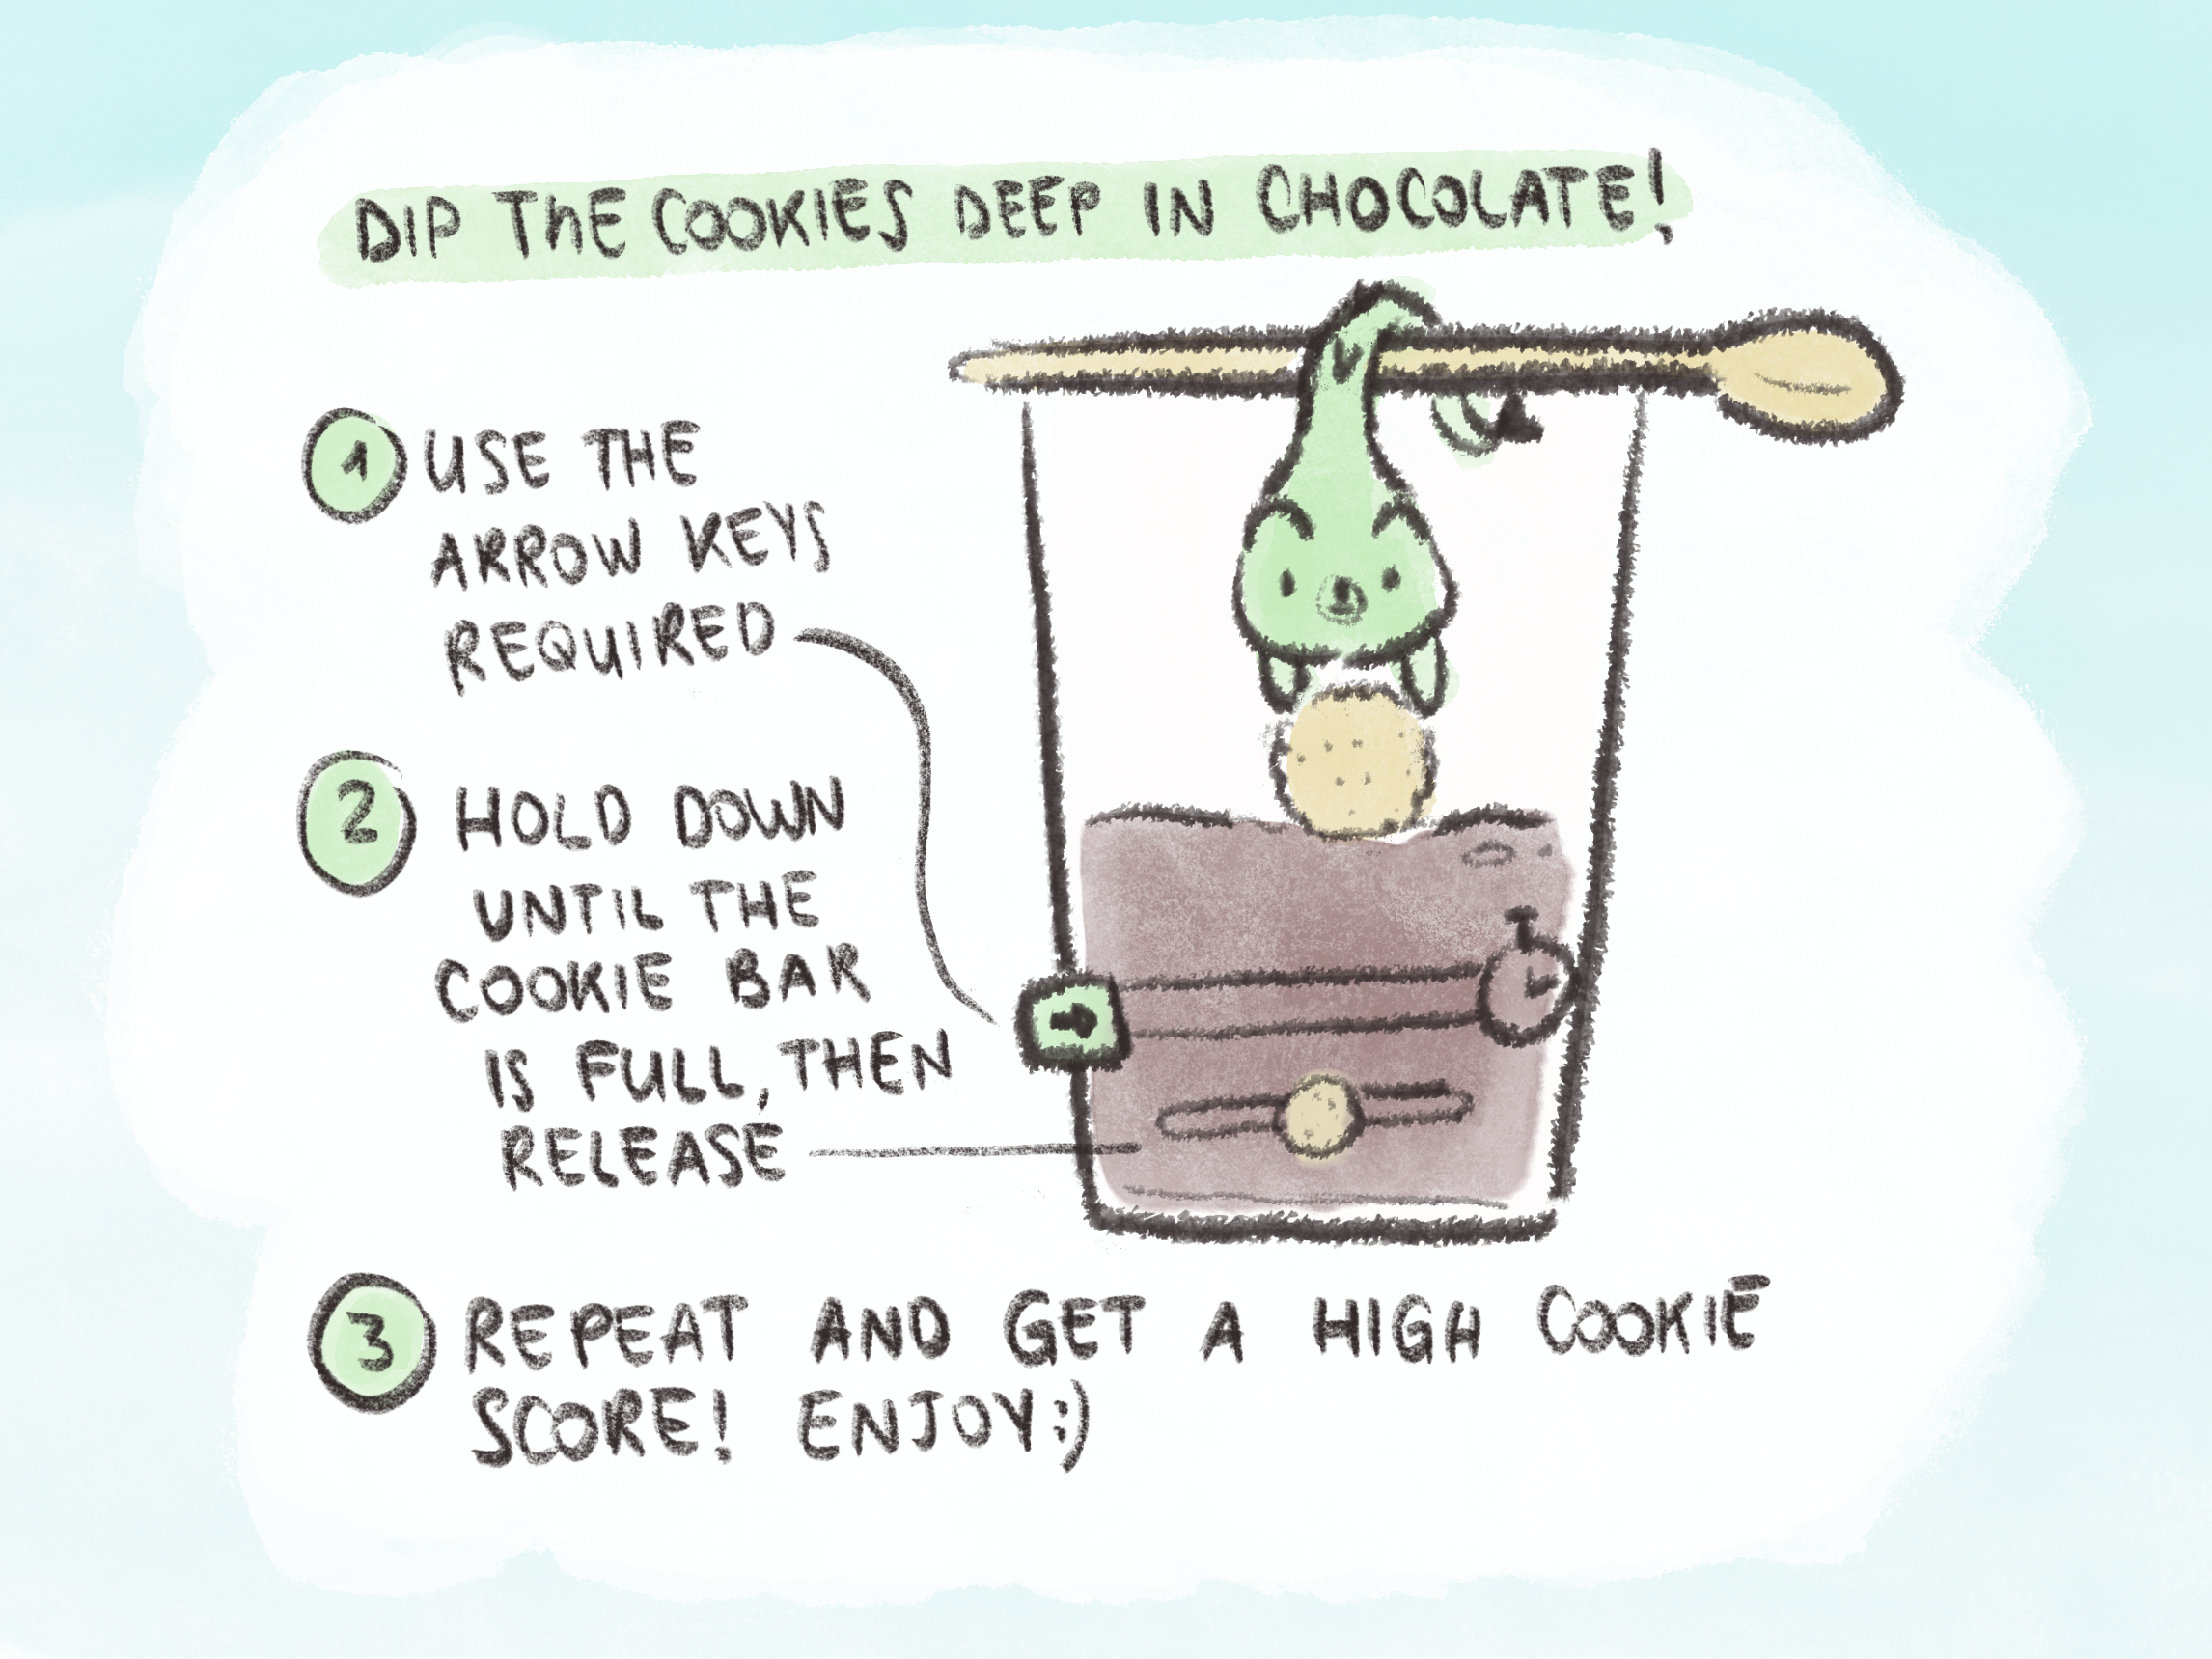 DIP THE COOKIES DEEP IN CHOCOLATE!
1 USE THE
ARROW KEYS
REQUIRED
2 HOLD DOWN
UNTIL THE
COOKIE BAR
IS FULL, THEN
RELEASE
3 REPEAT AND GET A HIGH COOKIE
SCORE! ENJOY:)